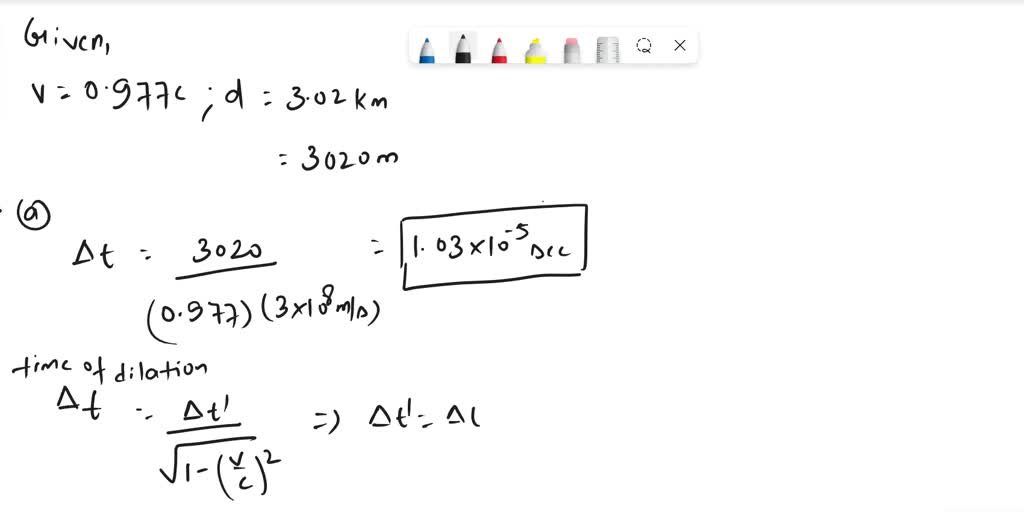 Given,
v = 0.977c ; d = 3.02 km
= 3020 m
(a)
Δt = 3020 / (0.977)(3×10⁸ m/s) = 1.03×10⁻⁵ sec
time of dilation
Δt = Δt' / √1-(v/c)² => Δt' = Δt